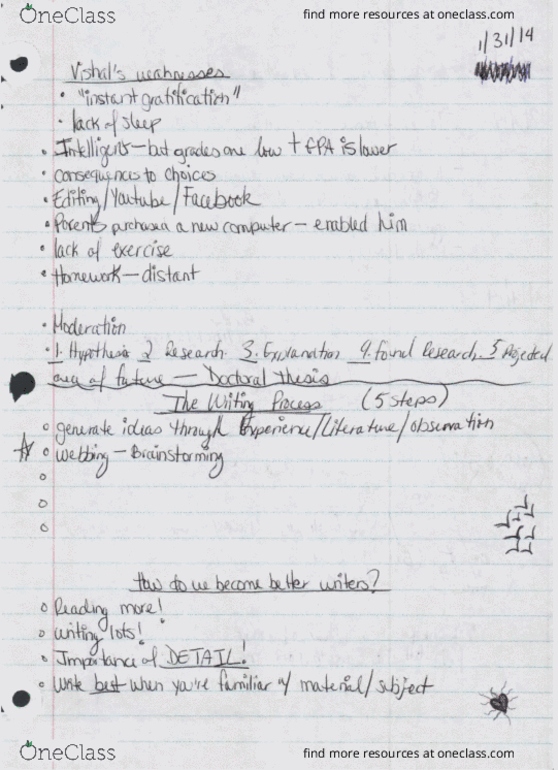 OneClass find more resources at oneclass.com
1/31/14
Vishal's weaknesses
• "instant gratification"
• lack of sleep
• Intelligent—but grades are low + GPA is lower
• consequences to choices
• Editing/Youtube/Facebook
• Parents purchased a new computer — enabled him
• lack of exercise
• Homework—distant
• Moderation
• 1. Hypothesis 2 Research 3. Explanation 4. found Research 5 Rejected
area of future — Doctoral thesis
The Writing Process (5 steps)
○ generate ideas through Experience/Literature/observation
☆ ○ webbing — Brainstorming
○
○
○
How do we become better writers?
○ Reading more!
○ writing lots!
○ Importance of DETAIL!
○ write best when you're familiar w/ material/subject
OneClass find more resources at oneclass.com